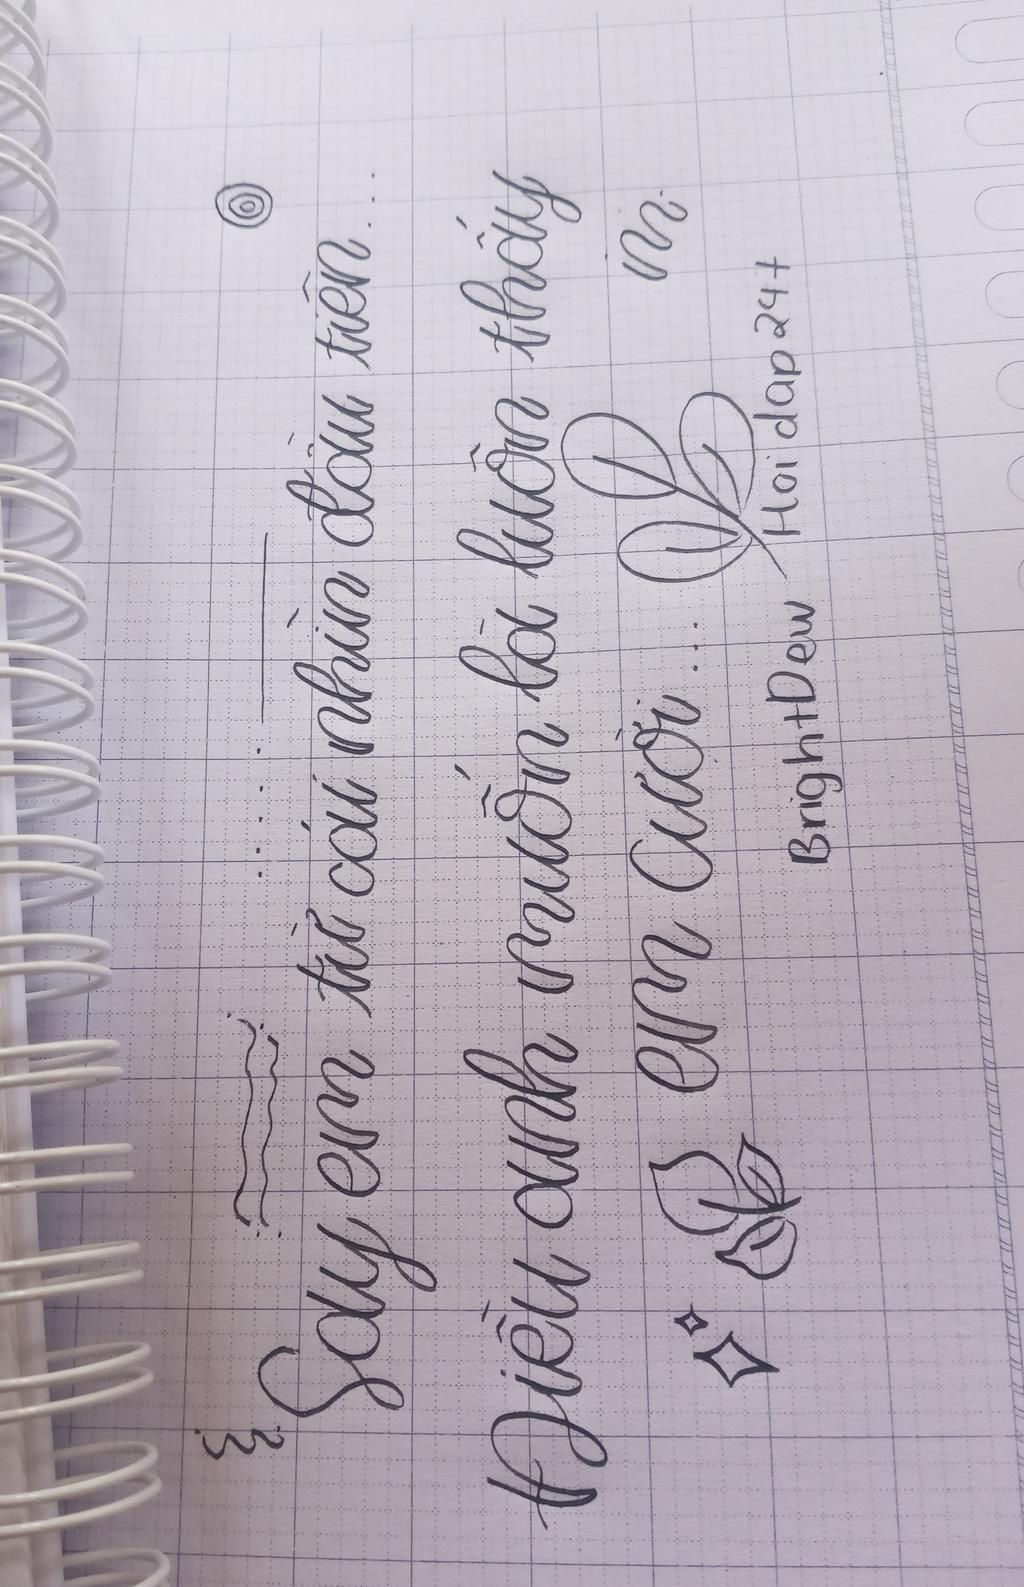 Say em từ cái nhìn đầu tiên...
Điều anh muốn là luôn thấy
em cười...
m.
BrightDew Hoidap247